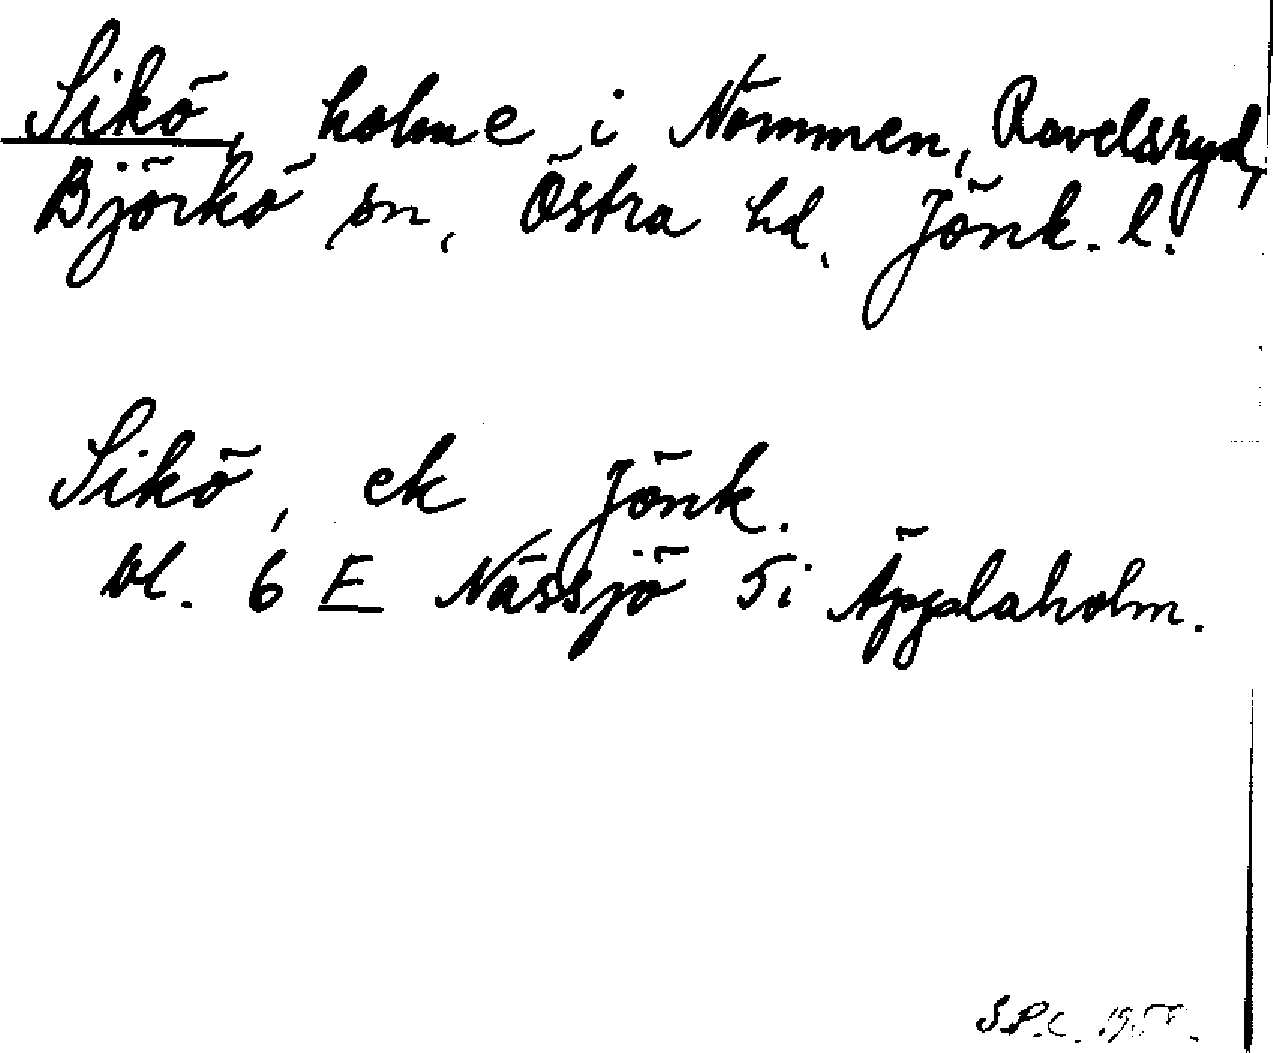 Sikö, holme i Nömmen, Ravelsryd,
Björkö sn, Östra hd, Jönk. l.
Sikö, ek Jönk.
bl. 6 E Nässjö 5i Äpplaholm.
S.P.C.